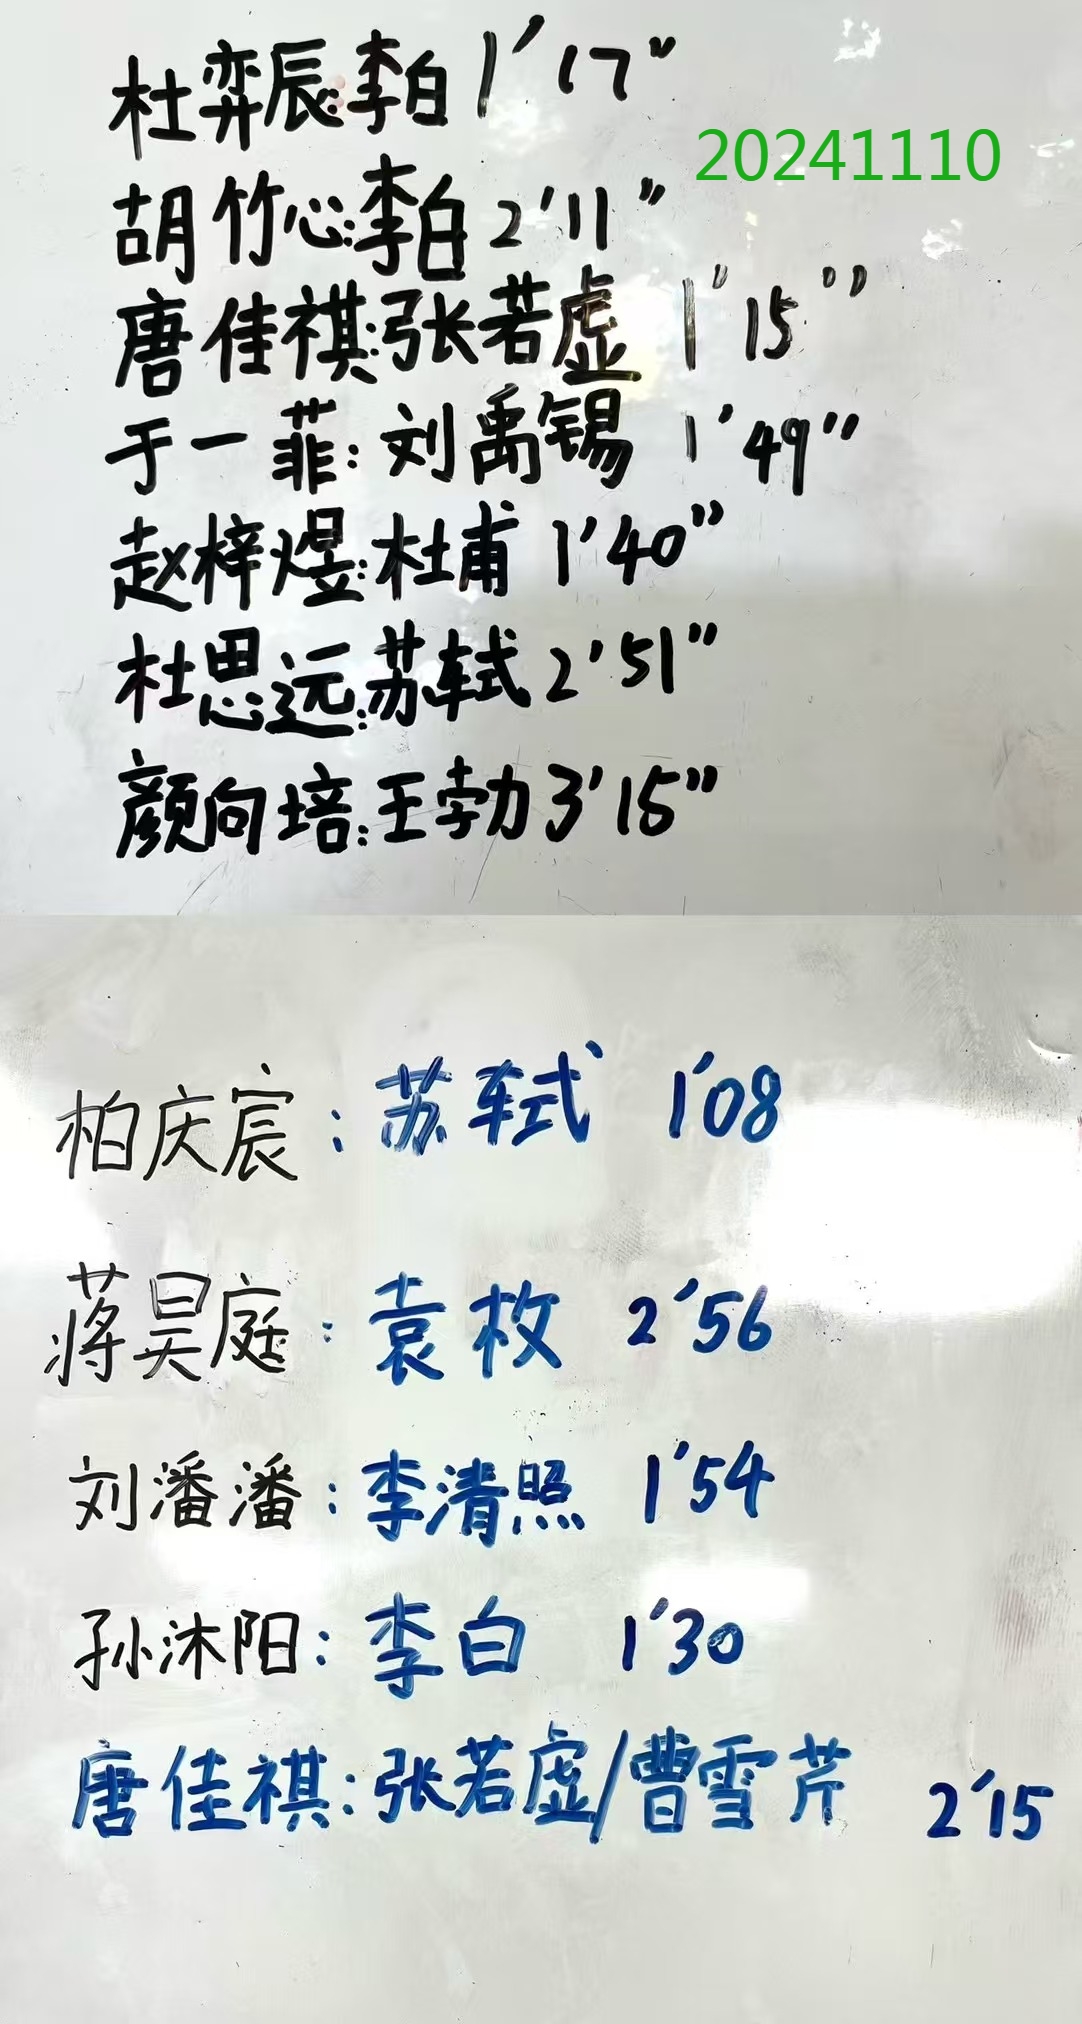 杜弈辰:李白 1'17"
20241110
胡竹心:李白 2'11"
唐佳祺:张若虚 1'15"
于一菲:刘禹锡 1'49"
赵梓煜:杜甫 1'40"
杜思远:苏轼 2'51"
颜向培:王勃 3'15"
柏庆宸:苏轼 1'08
蒋昊庭:袁枚 2'56
刘潘潘:李清照 1'54
孙沐阳:李白 1'30
唐佳祺:张若虚/曹雪芹 2'15